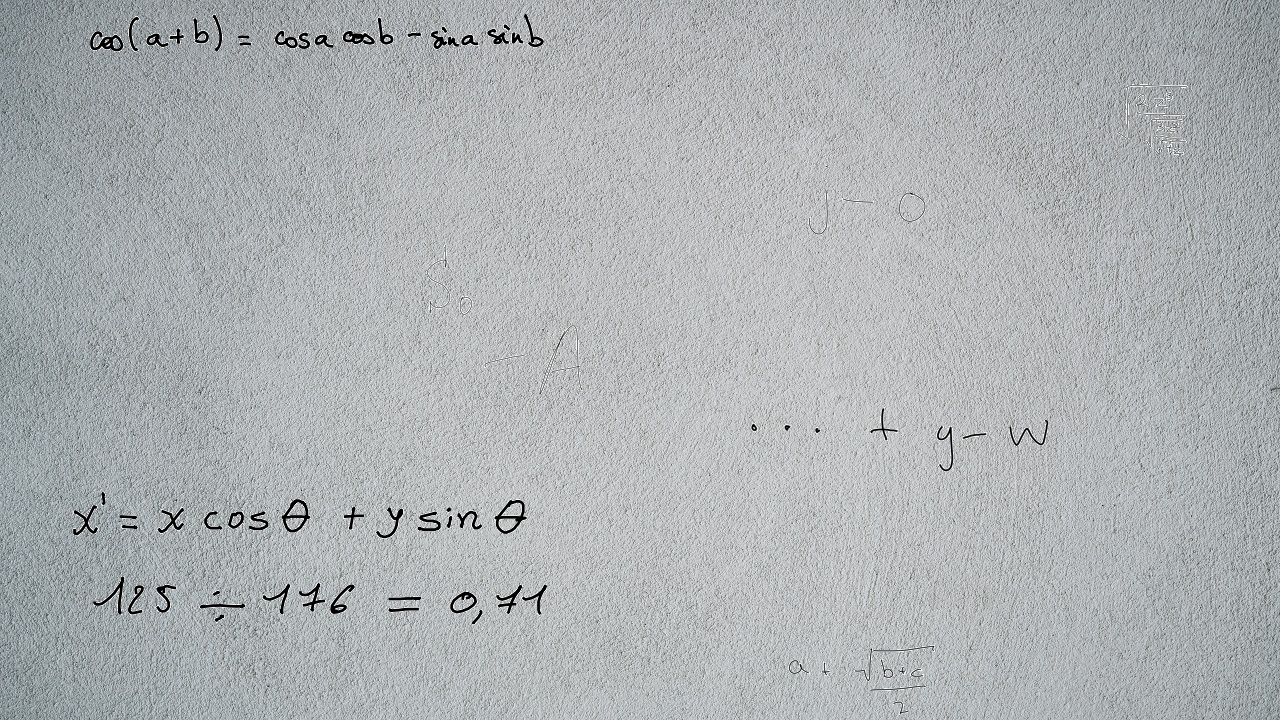 cos(a+b) = cosa cosb - sina sinb
y - 0
S₀
- A
... + y - w
x' = x cos θ + y sin θ
125 ÷ 176 = 0,71
a + √(b+c)/2